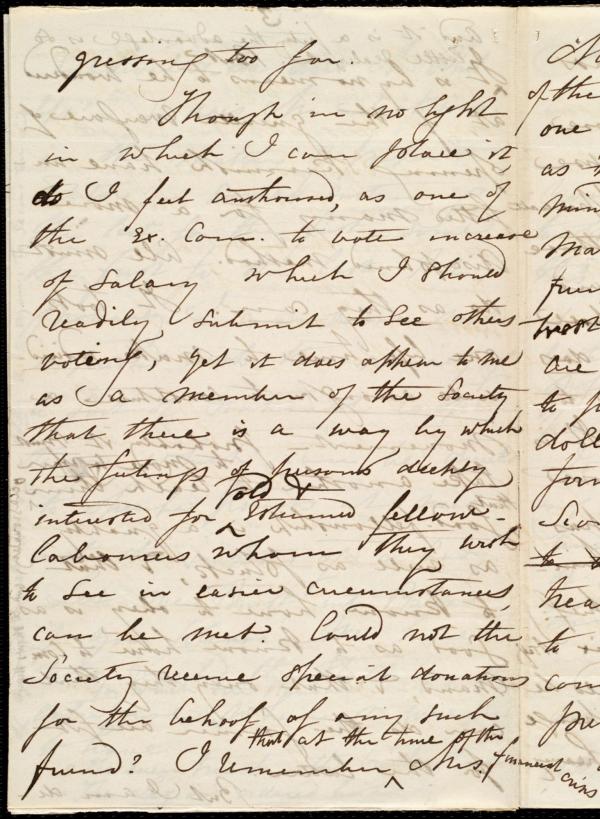 gressing too far.
Though in no light
in which I can place it,
do I feel authorized, as one of
the Ex. Com. to vote increase
of salary which I should
readily submit to see others
voting, yet it does appear to me
as a member of the Society
that there is a way by which
the feelings of persons deeply
interested for old & esteemed fellow-
labourers whom they wish
to see in easier circumstances,
can be met. Could not the
Society receive special donations
for the behoof of any such
friend? I remember that at the time of the financial crisis Mrs.
No
of the
one
as
min
Ma
fun
are
to
doll
for
to
hea
to
com
pre